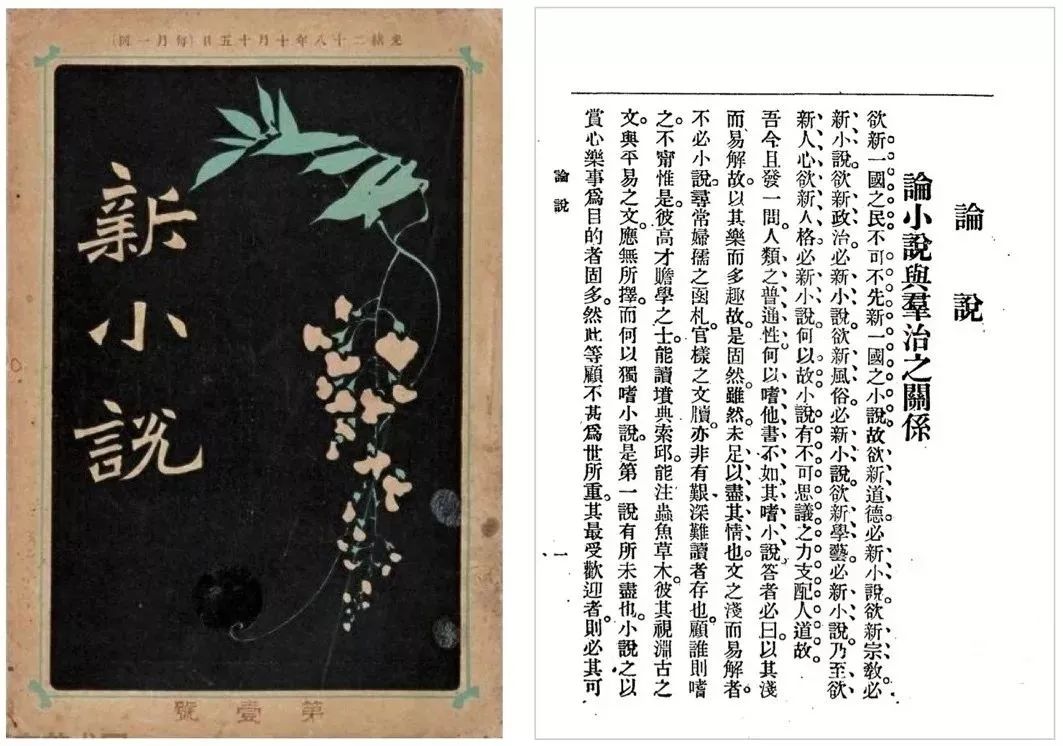 光緒二十八年十月十五日(每月一回)
新小說
第壹號
論說
論小說與羣治之關係
欲新一國之民不可不先新一國之小說故欲新道德必新小說欲新宗教必
新小說欲新政治必新小說欲新風俗必新小說欲新學藝必新小說乃至欲
新人心欲新人格必新小說何以故小說有不可思議之力支配人道故。
吾今且發一問人類之普通性何以嗜他書不如其嗜小說答者必曰以其淺
而易解故以其樂而多趣故是固然雖然未足以盡其情也文之淺而易解者
不必小說尋常婦孺之函札官樣之文牘亦非有艱深難讀者存也顧誰則嗜
之不甯惟是彼高才贍學之士能讀墳典索邱能注蟲魚草木彼其視淵古之
文與平易之文應無所擇而何以獨嗜小說是第一說有所未盡也小說之以
賞心樂事爲目的者固多然此等顧不甚爲世所重其最受歡迎者則必其可
論說
一